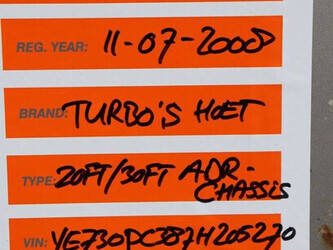 REG. YEAR: 11-07-2008
BRAND: TURBO'S HOET
TYPE: 20FT/30FT ADR-
CHASSIS
VIN: YE730PC387H205270